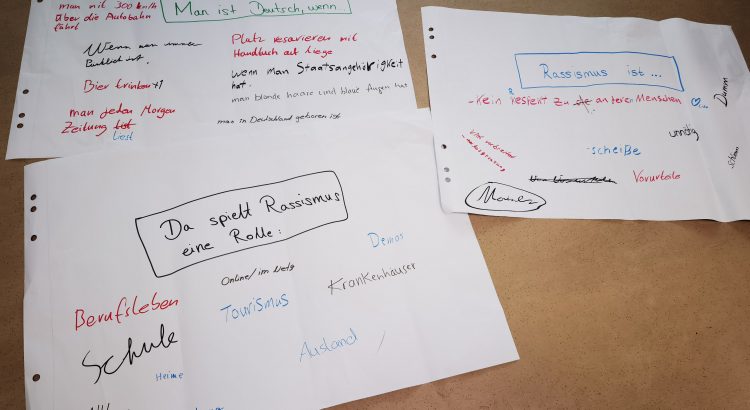 man mit 300 km/h
über die Autobahn
fährt
Man ist Deutsch, wenn
Wenn man immer
Pünktlich ist.
Platz resavieren mit
Handtuch auf Liege
Bier trinken
wenn man Staatsangehörigkeit
hat.
man blonde haare und blaue Augen hat
man jeden Morgen
Zeitung list
liest
man in Deutschland geboren ist
Rassismus ist ...
- Kein Respekt zu anderen Menschen
Dumm
unnötig
scheiße
Vorurteile
Da spielt Rassismus
eine Rolle:
Demos
Online/im Netz
Krankenhäuser
Berufsleben
Tourismus
Schule
Ausland
Heime